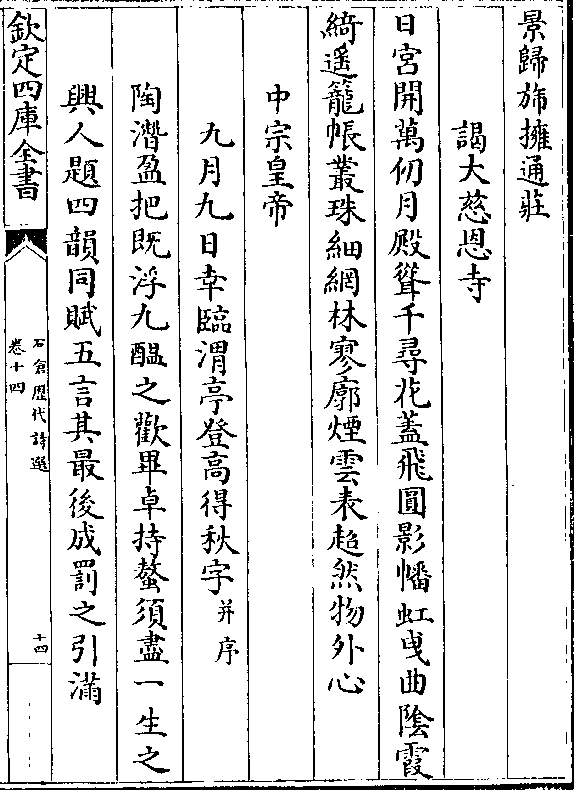 景歸旆擁通莊
謁大慈恩寺
日宮開萬仞月殿聳千尋花蓋飛圓影幡虹曳曲陰霞
綺遥籠帳叢珠細網林寥廓煙雲表超然物外心
中宗皇帝
九月九日幸臨渭亭登高得秋字并序
陶潛盈把既浮九醖之歡畢卓持螯須盡一生之
興人題四韻同賦五言其最後成罰之引滿
欽定四庫全書
石倉歷代詩選
卷十四
十四